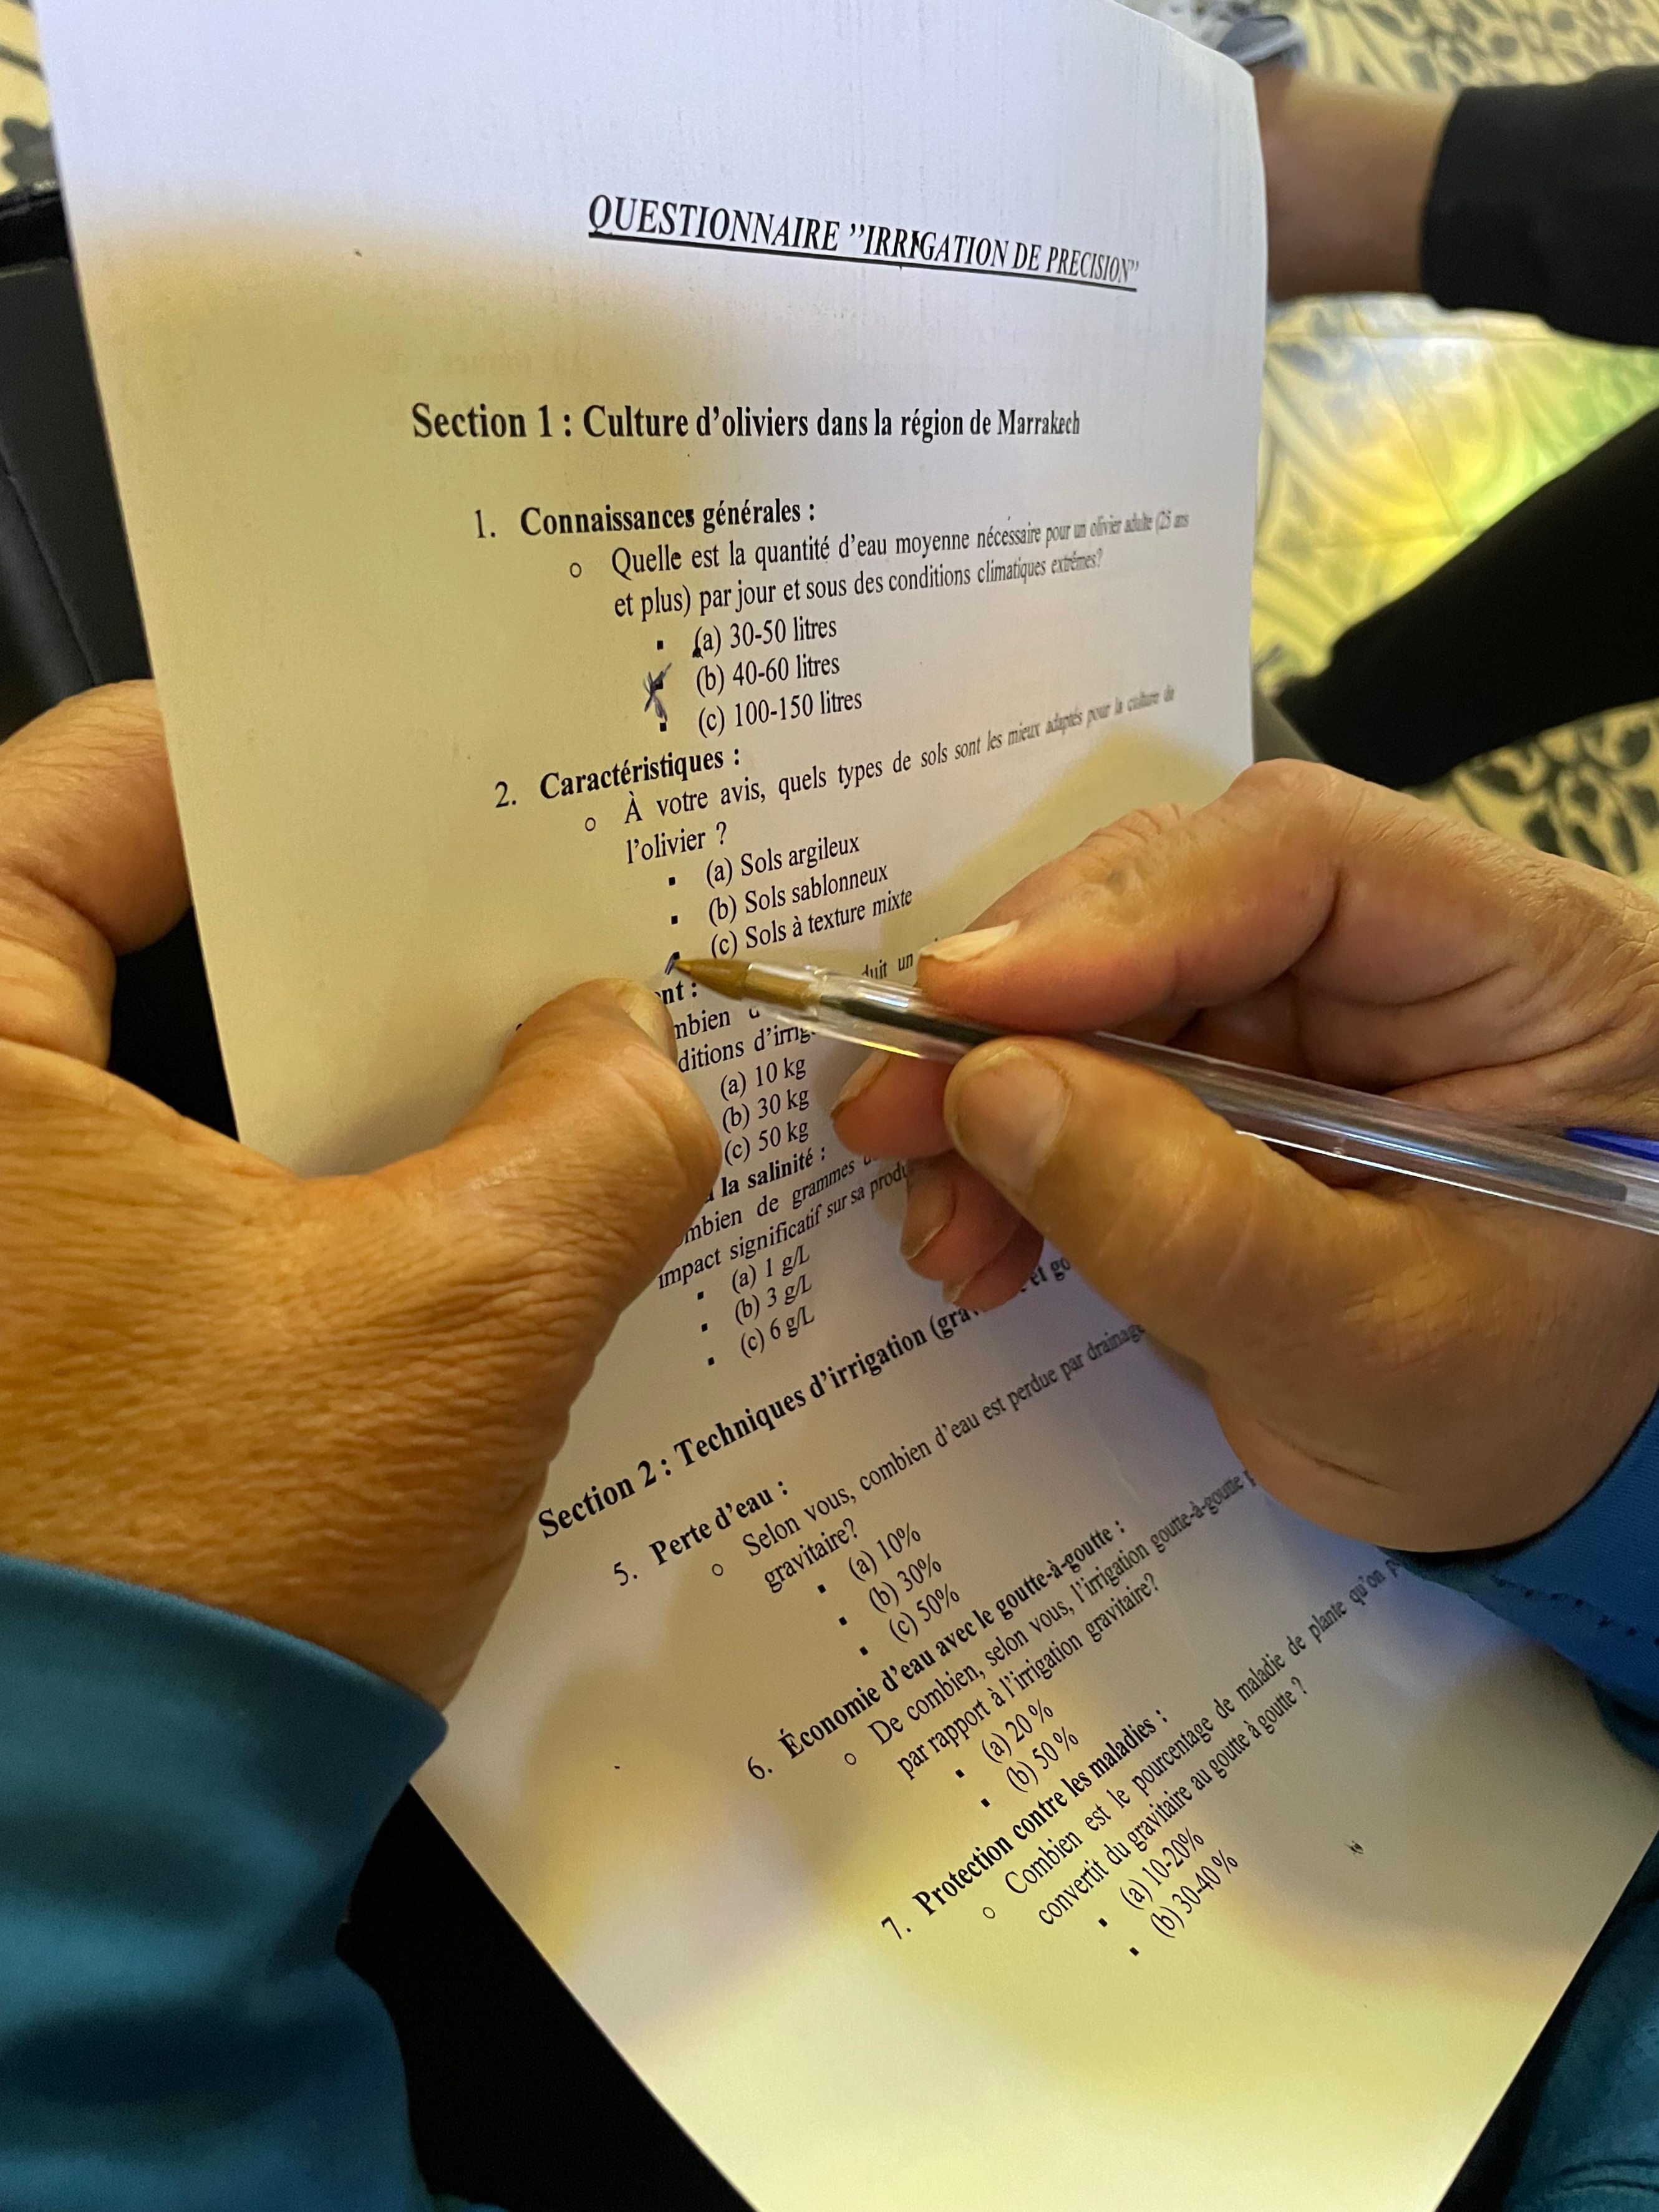 QUESTIONNAIRE ”IRRIGATION DE PRECISION”
Section 1 : Culture d’oliviers dans la région de Marrakech
1. Connaissances générales :
o Quelle est la quantité d’eau moyenne nécessaire pour un olivier adulte (25 ans
et plus) par jour et sous des conditions climatiques extrêmes?
▪ (a) 30-50 litres
▪ (b) 40-60 litres
▪ (c) 100-150 litres
2. Caractéristiques :
o À votre avis, quels types de sols sont les mieux adaptés pour la culture de
l’olivier ?
▪ (a) Sols argileux
▪ (b) Sols sablonneux
▪ (c) Sols à texture mixte
nt :
mbien duit un
ditions d’irrig
(a) 10 kg
(b) 30 kg
(c) 50 kg
la salinité :
mbien de grammes
impact significatif sur sa produ
▪ (a) 1 g/L
▪ (b) 3 g/L
▪ (c) 6 g/L
Section 2 : Techniques d’irrigation (gra et go
5. Perte d’eau :
o Selon vous, combien d’eau est perdue par drainage
gravitaire?
▪ (a) 10%
▪ (b) 30%
▪ (c) 50%
6. Économie d’eau avec le goutte-à-goutte :
o De combien, selon vous, l’irrigation goutte-à-goutte
par rapport à l’irrigation gravitaire?
▪ (a) 20 %
▪ (b) 50 %
7. Protection contre les maladies :
o Combien est le pourcentage de maladie de plante qu’on
convertit du gravitaire au goutte à goutte ?
▪ (a) 10-20%
▪ (b) 30-40 %